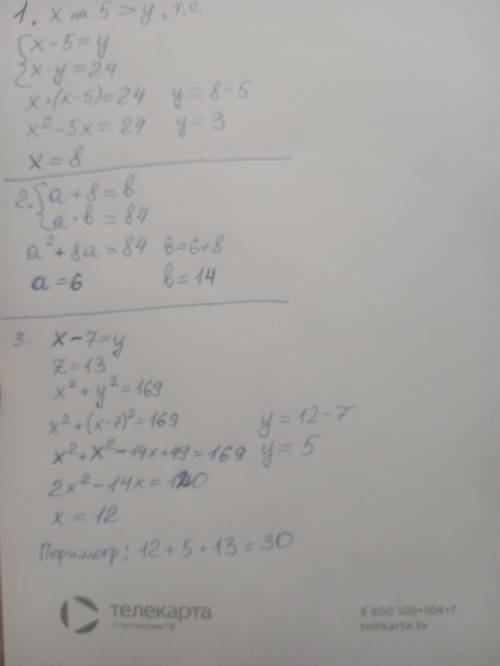 1. x на 5 > y, т.е.
{x - 5 = y
{x · y = 24
x · (x-5) = 24 y = 8-5
x² - 5x = 24 y = 3
x = 8
2. {a + 8 = b
{a · b = 84
a² + 8a = 84 b = 6+8
a = 6 b = 14
3. x - 7 = y
z = 13
x² + y² = 169
x² + (x-7)² = 169 y = 12-7
x² + x² - 14x + 49 = 169 y = 5
2x² - 14x = 120
x = 12
Периметр: 12 + 5 + 13 = 30
телекарта 8 800 100•104•7
Спутниковое ТВ telekarta.tv